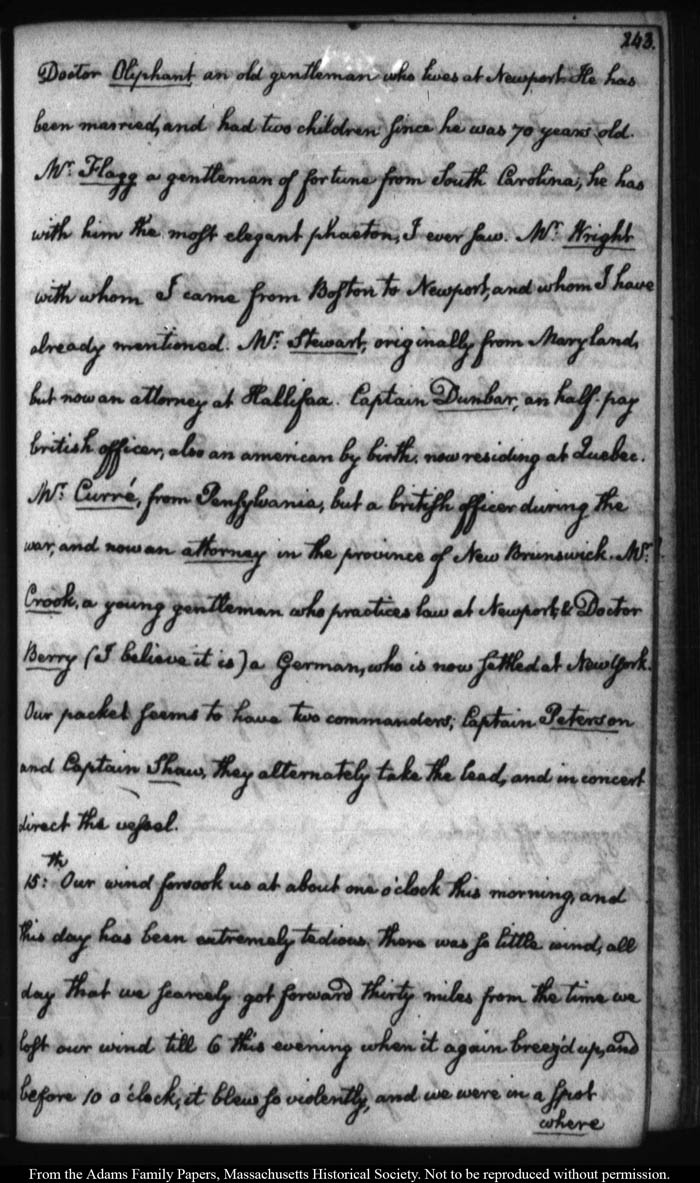 243.
Doctor Oliphant an old gentleman who lives at Newport. He has
been married, and had two children since he was 70 years old.
Mr. Flagg a gentleman of fortune from South Carolina, he has
with him the most elegant phaeton, I ever saw. Mr. Wright
with whom I came from Boston to Newport, and whom I have
already mentioned. Mr. Stewart, originally from Maryland,
but now an attorney at Hallifax. Captain Dunbar, an half-pay
british officer, also an american by birth, now residing at Quebec.
Mr. Curré, from Pensylvania, but a british officer during the
war, and now an attorney in the province of New Brunswick. Mr.
Crook, a young gentleman who practices law at Newport, & Doctor
Berry (I believe it is) a German, who is now settled at New York.
Our packet seems to have two commanders; Captain Peterson
and Captain Shaw, they alternately take the lead, and in concert
direct the vessel.
15:th Our wind forsook us at about one o'clock this morning, and
this day has been extremely tedious. there was so little wind, all
day that we scarcely got forward thirty miles from the time we
lost our wind till 6 this evening when it again breez'd up, and
before 10 o'clock, it blew so violently, and we were in a spot
where
From the Adams Family Papers, Massachusetts Historical Society. Not to be reproduced without permission.